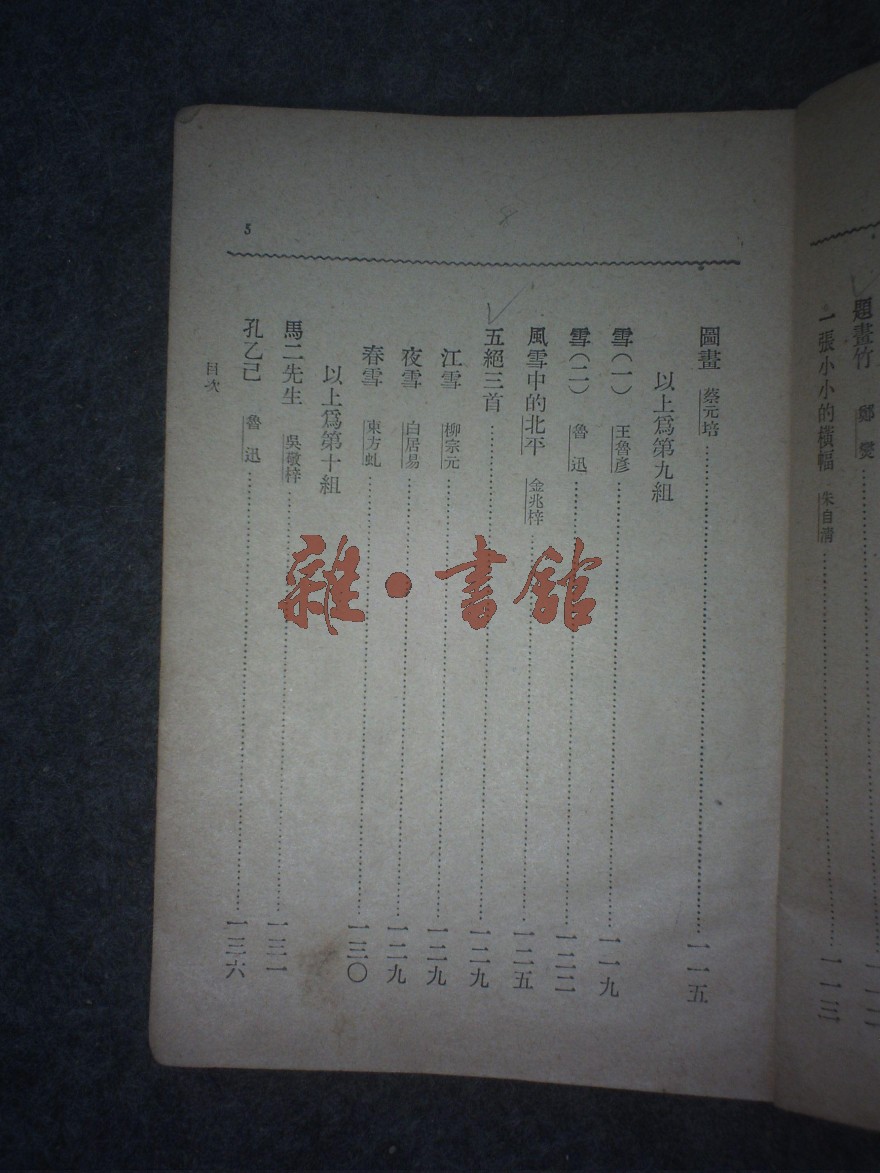 題畫竹 鄭燮
一張小小的橫幅 朱自清 一一三
圖畫 蔡元培 一一五
以上爲第九組
雪(一) 王魯彥 一一九
雪(二) 魯迅 一二二
風雪中的北平 金兆梓 一二五
五絕三首 一二九
江雪 柳宗元 一二九
夜雪 白居易 一二九
春雪 東方虬 一三〇
以上爲第十組
馬二先生 吳敬梓 一三一
孔乙己 魯迅 一三六
目次
5
雜·書館